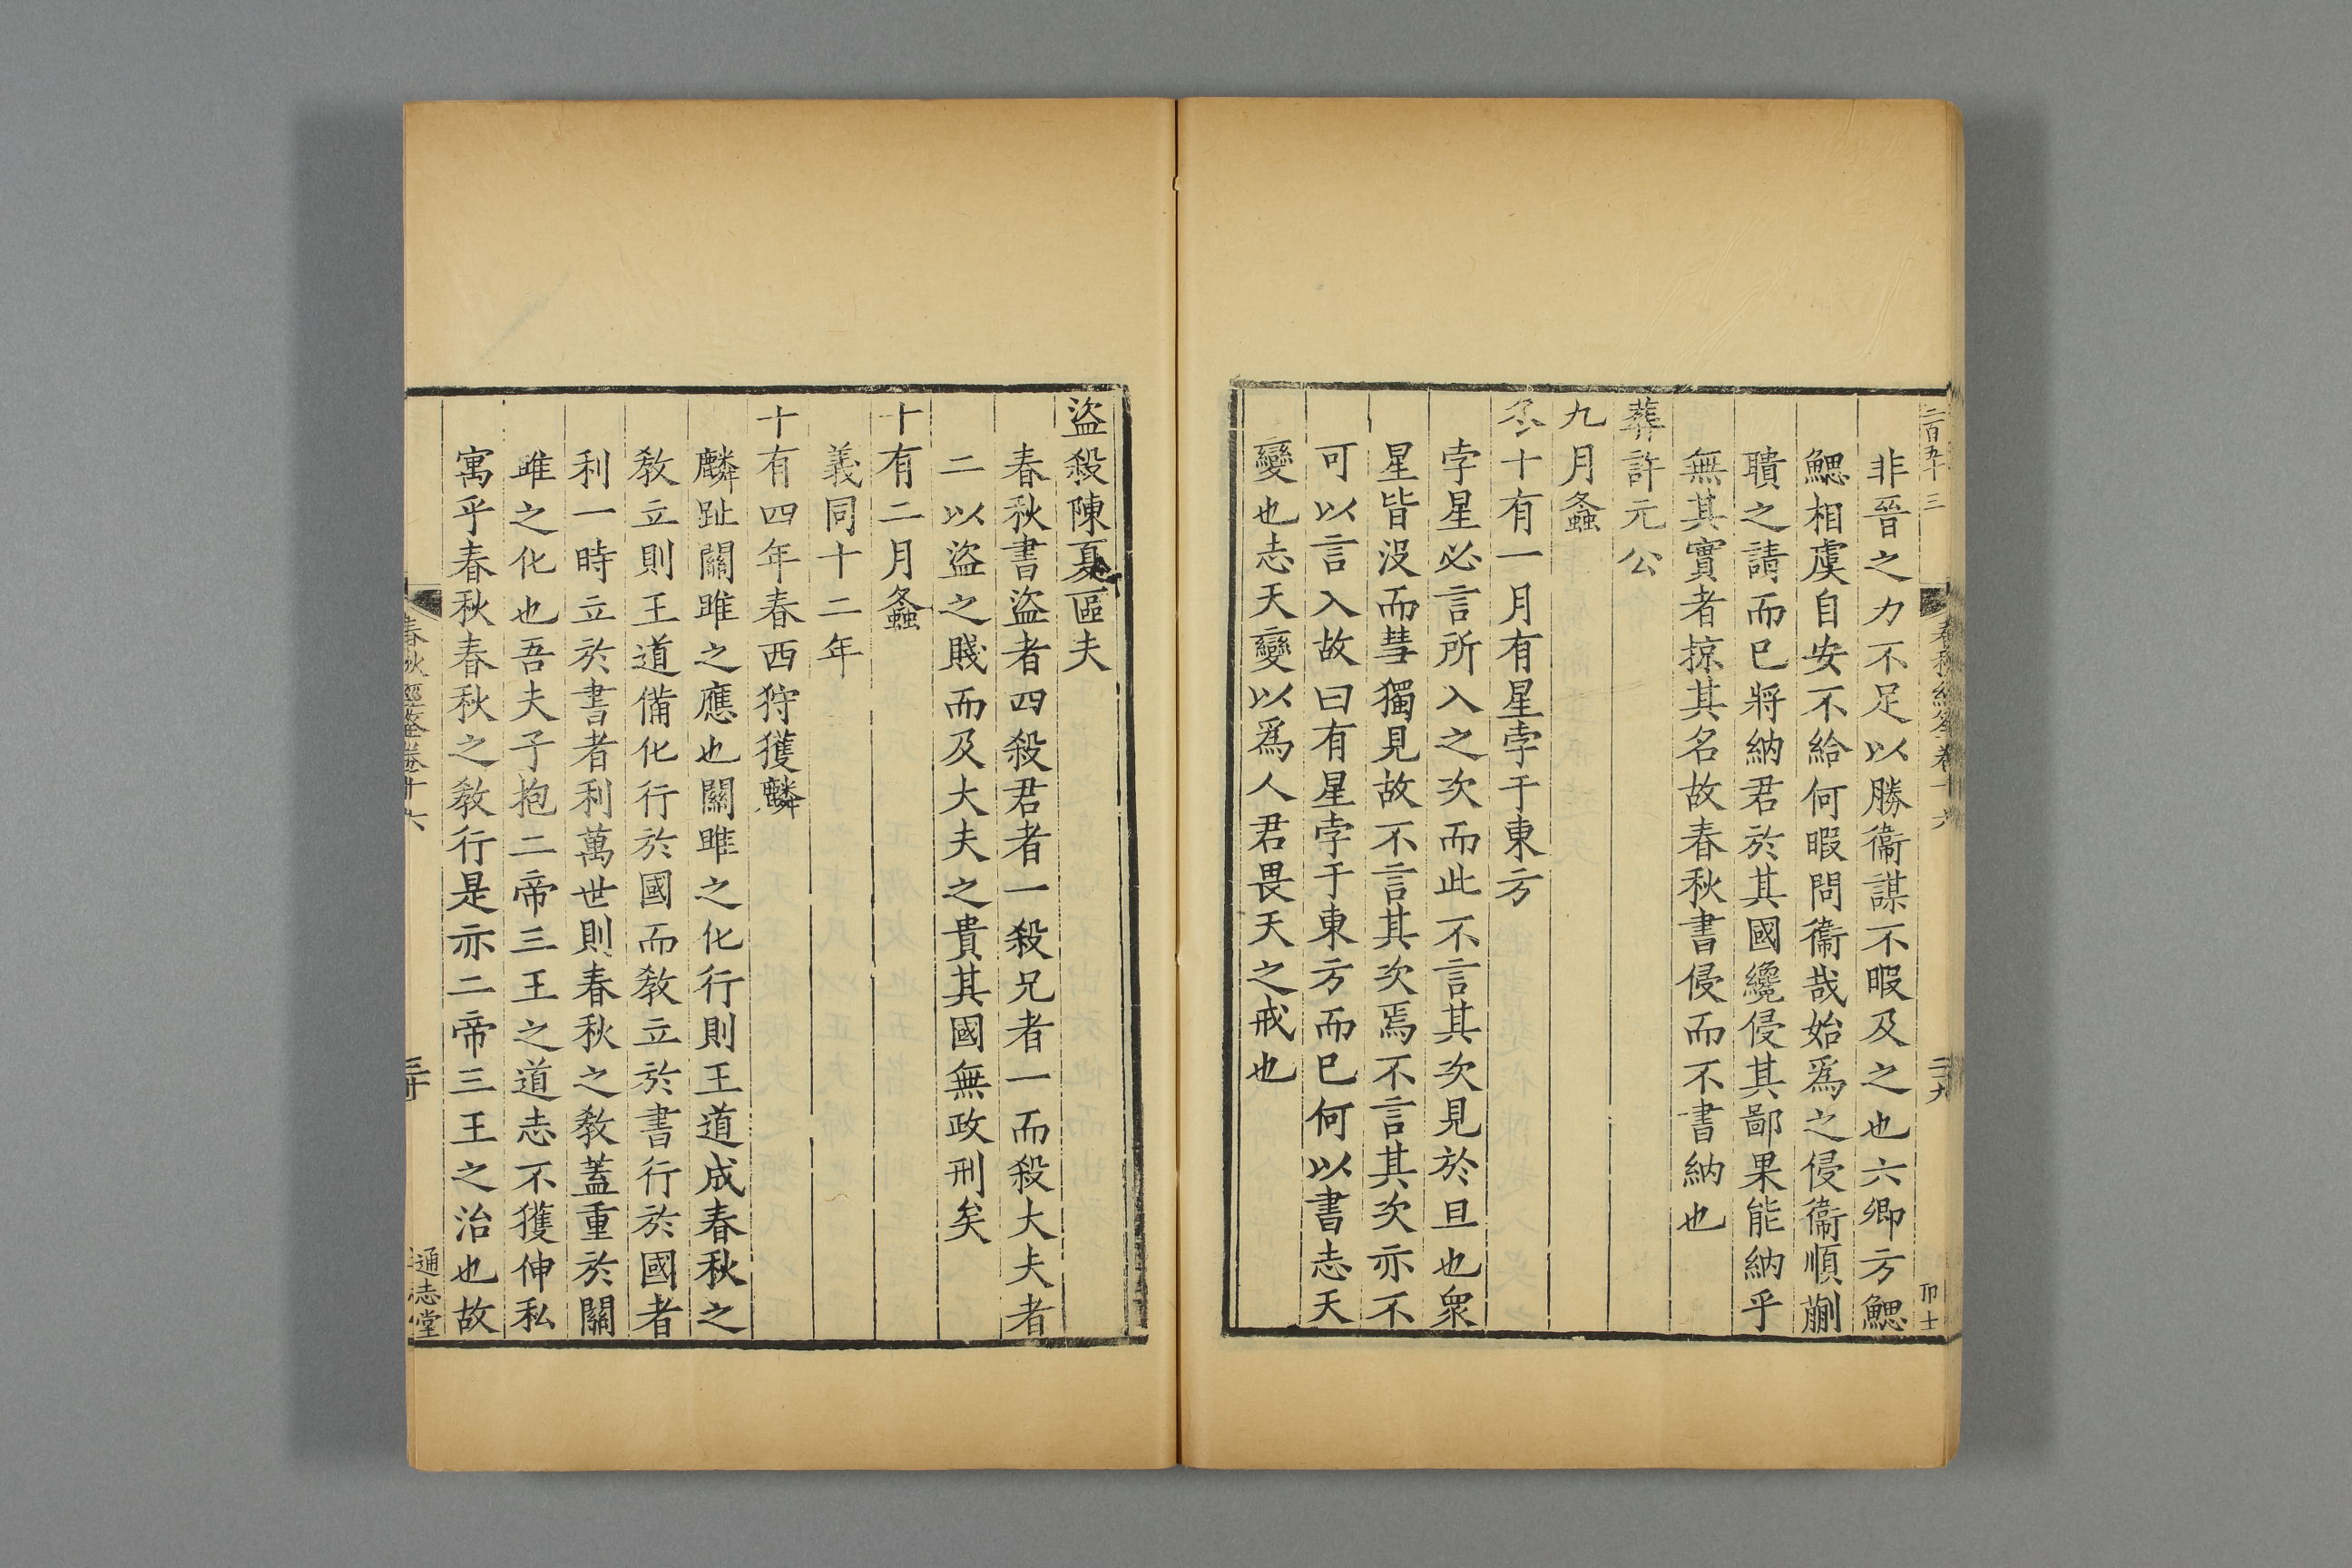 二百五十三
春秋經筌卷十六
二十九
非晉之力不足以勝衞謀不暇及之也六卿方鰓
鰓相虞自安不給何暇問衞哉始爲之侵衞順蒯
聵之請而已將納君於其國纔侵其鄙果能納乎
無其實者掠其名故春秋書侵而不書納也
葬許元公
九月螽
冬十有一月有星孛于東方
孛星必言所入之次而此不言其次見於旦也衆
星皆沒而彗獨見故不言其次焉不言其次亦不
可以言入故曰有星孛于東方而已何以書志天
變也志天變以爲人君畏天之戒也
盜殺陳夏區夫
春秋書盜者四殺君者一殺兄者一而殺大夫者
二以盜之賤而及大夫之貴其國無政刑矣
十有二月螽
義同十二年
十有四年春西狩獲麟
麟趾關雎之應也關雎之化行則王道成春秋之
敎立則王道備化行於國而敎立於書行於國者
利一時立於書者利萬世則春秋之敎蓋重於關
雎之化也吾夫子抱二帝三王之道志不獲伸私
寓乎春秋春秋之敎行是亦二帝三王之治也故
春秋經筌卷十六
三十
通志堂